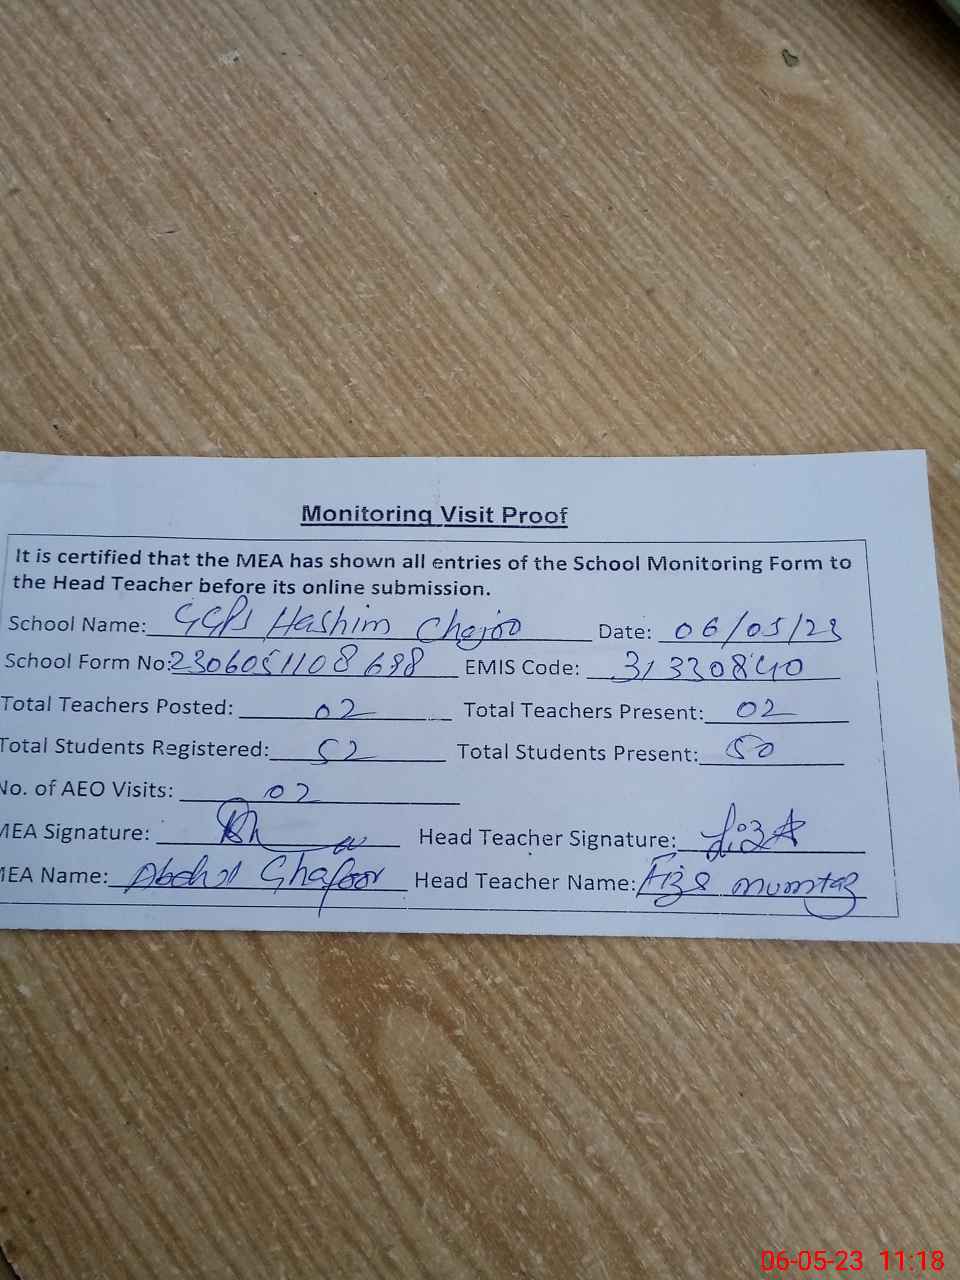 Monitoring Visit Proof
It is certified that the MEA has shown all entries of the School Monitoring Form to
the Head Teacher before its online submission.
School Name: GGPS Hashim Chajoo Date: 06/05/23
School Form No: 2306051108698 EMIS Code: 31330840
Total Teachers Posted: 02 Total Teachers Present: 02
Total Students Registered: 52 Total Students Present: 50
No. of AEO Visits: 02
MEA Signature: Head Teacher Signature: Fiza
MEA Name: Abdul Ghafoor Head Teacher Name: Fiza mumtaz
06-05-23 11:18